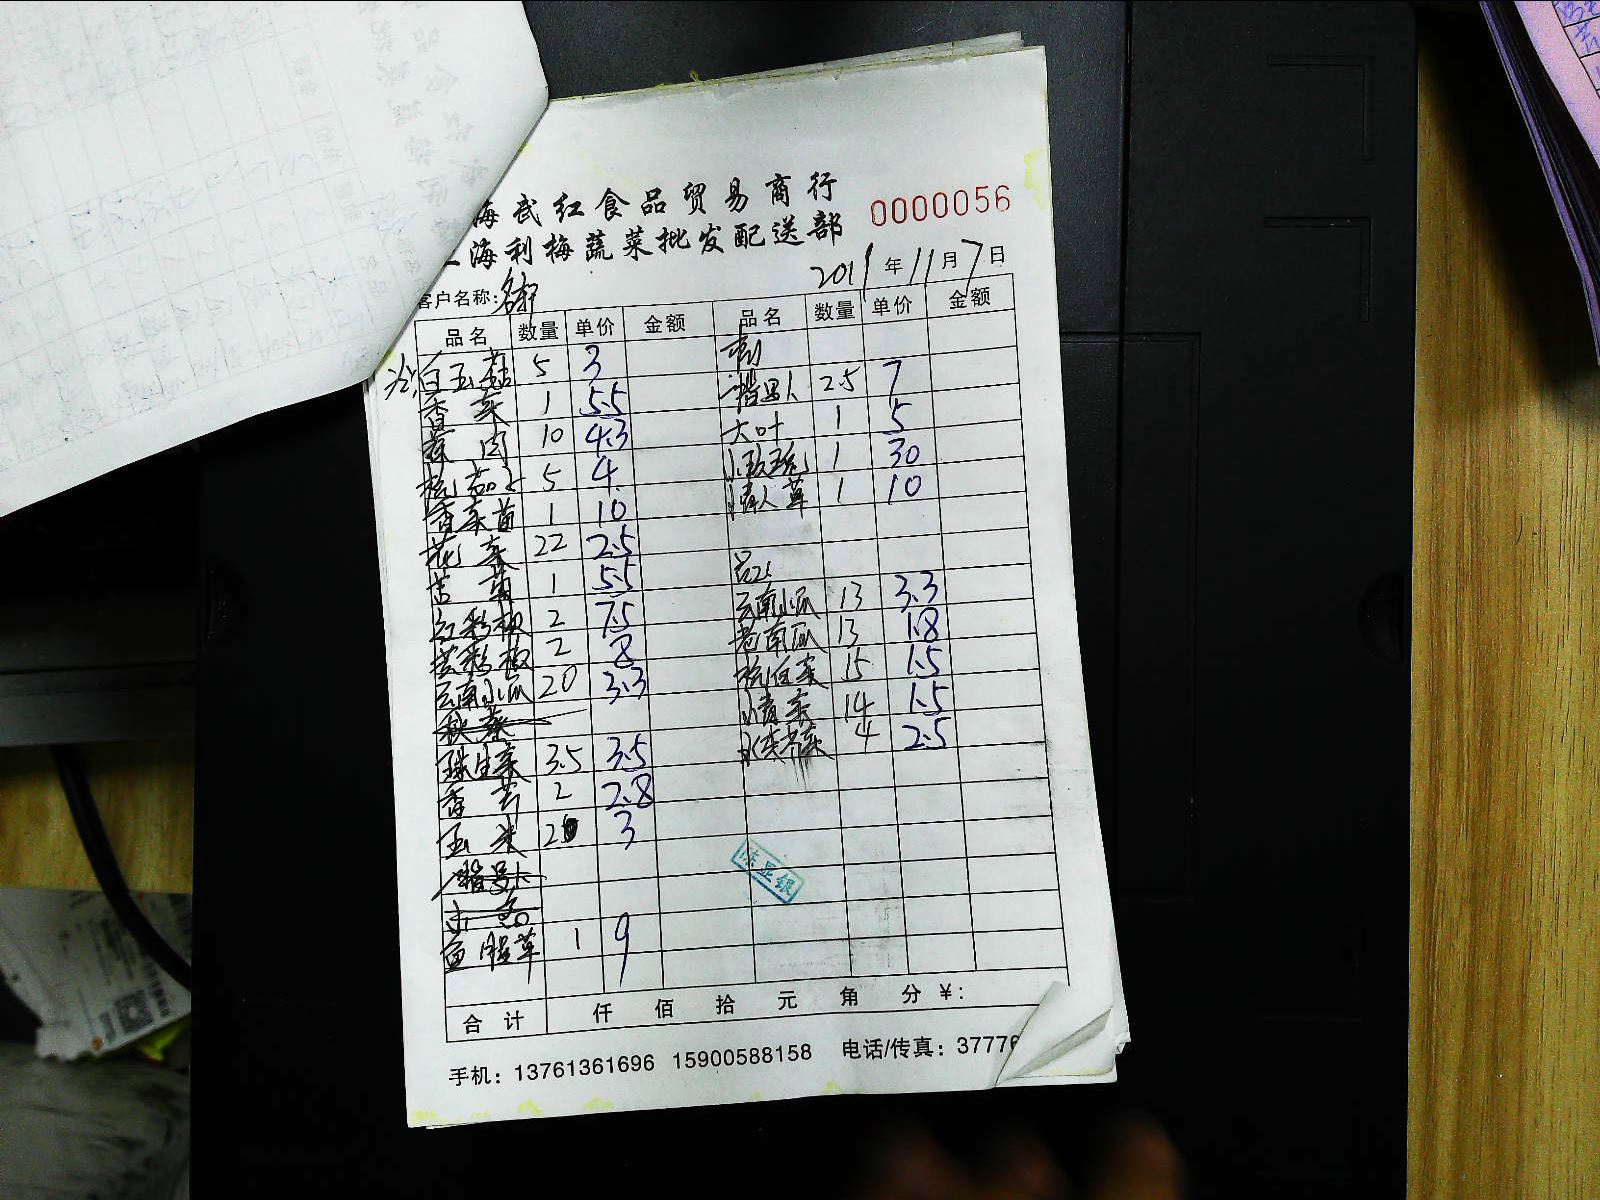 海武红食品贸易商行
海利梅蔬菜批发配送部
0000056
2011年11月7日
客户名称:
品名 数量 单价 金额 品名 数量 单价 金额
白玉菇 5 3
香菜 1 5.5
10 4.3
杭茄 5 4
香菜苗 1 10
花菜 22 2.5
1 5.5
红彩椒 2 7.5
黄彩椒 2 8
云南小瓜 20 3.3
球生菜 3.5 3.5
香芹 2 2.8
玉米 3
鱼腥草 1 9
2.5 7
大叶 1 5
小玫瑰 1 30
情人草 1 10
云南小瓜 13 3.3
老南瓜 13 1.8
杭白菜 15 1.5
小青菜 14 1.5
4 2.5
合计 仟 佰 拾 元 角 分 ¥:
手机: 13761361696 15900588158 电话/传真: 37776